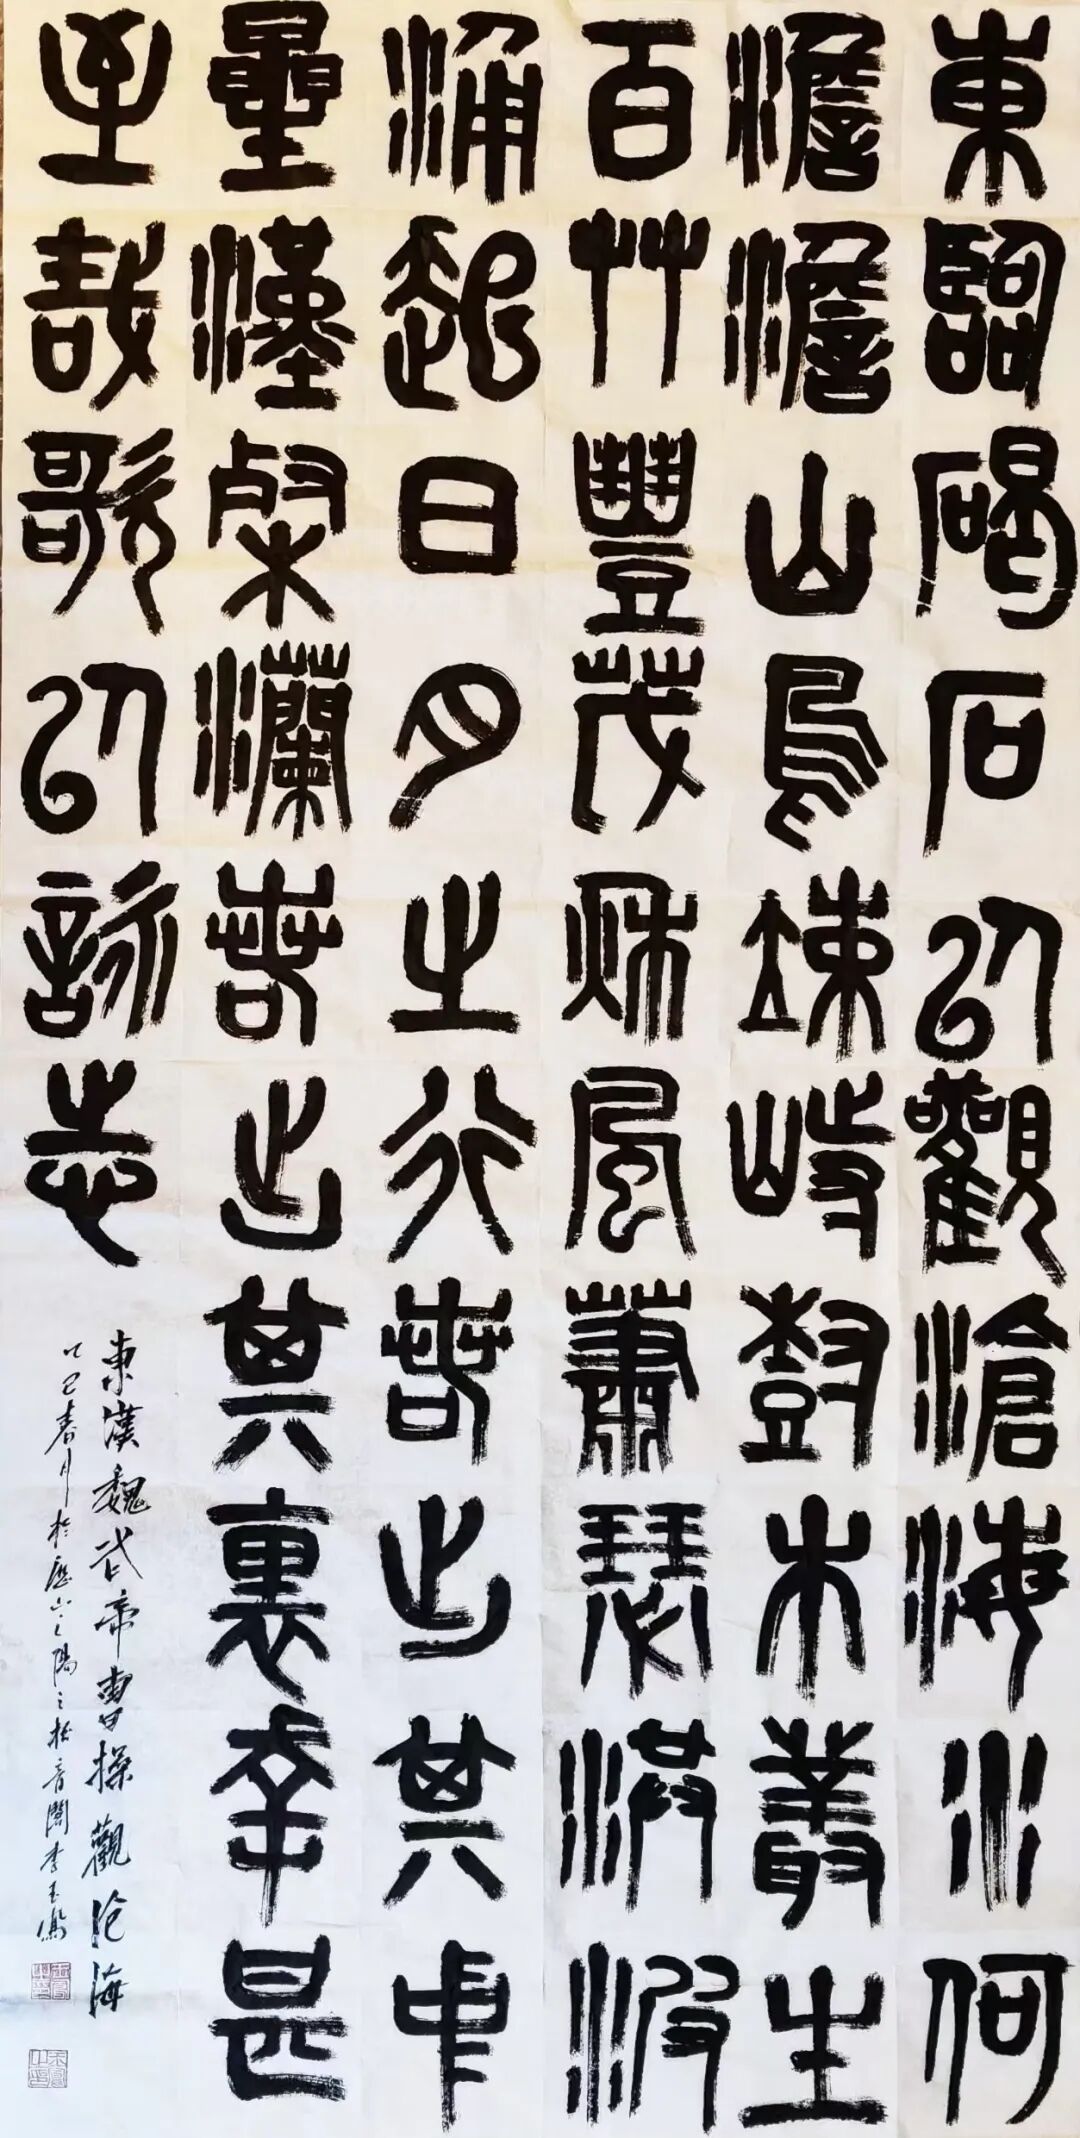 東臨碣石以觀滄海水何
澹澹山島竦峙尌木叢生
百艸豐茂秋風蕭瑟洪波
涌起日月之行若出其中
星漢粲爛若出其裏幸甚
至哉歌以詠志
東漢魏武帝曹操觀滄海
乙巳春月於歷山之陽之音李玉